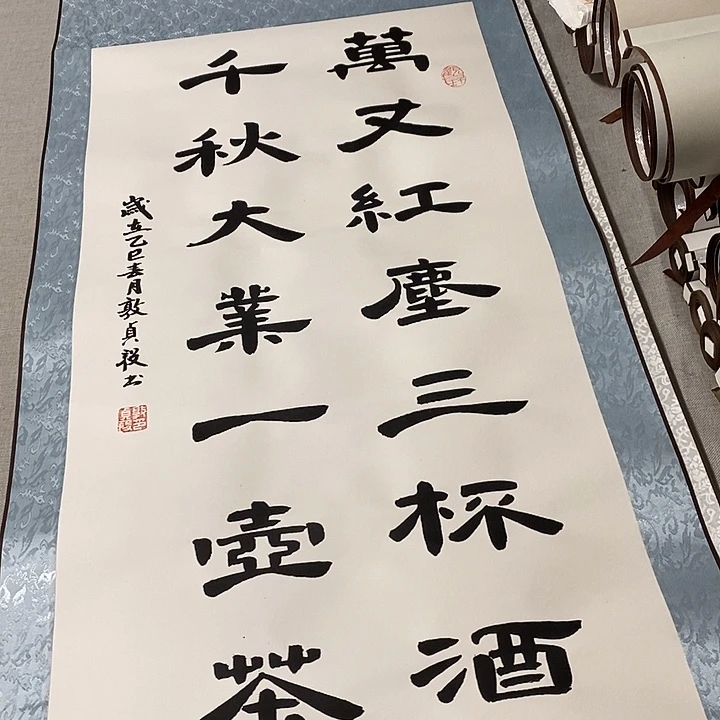 萬丈紅塵三杯酒
千秋大業一壺茶
歲在乙巳春月敦貞段书